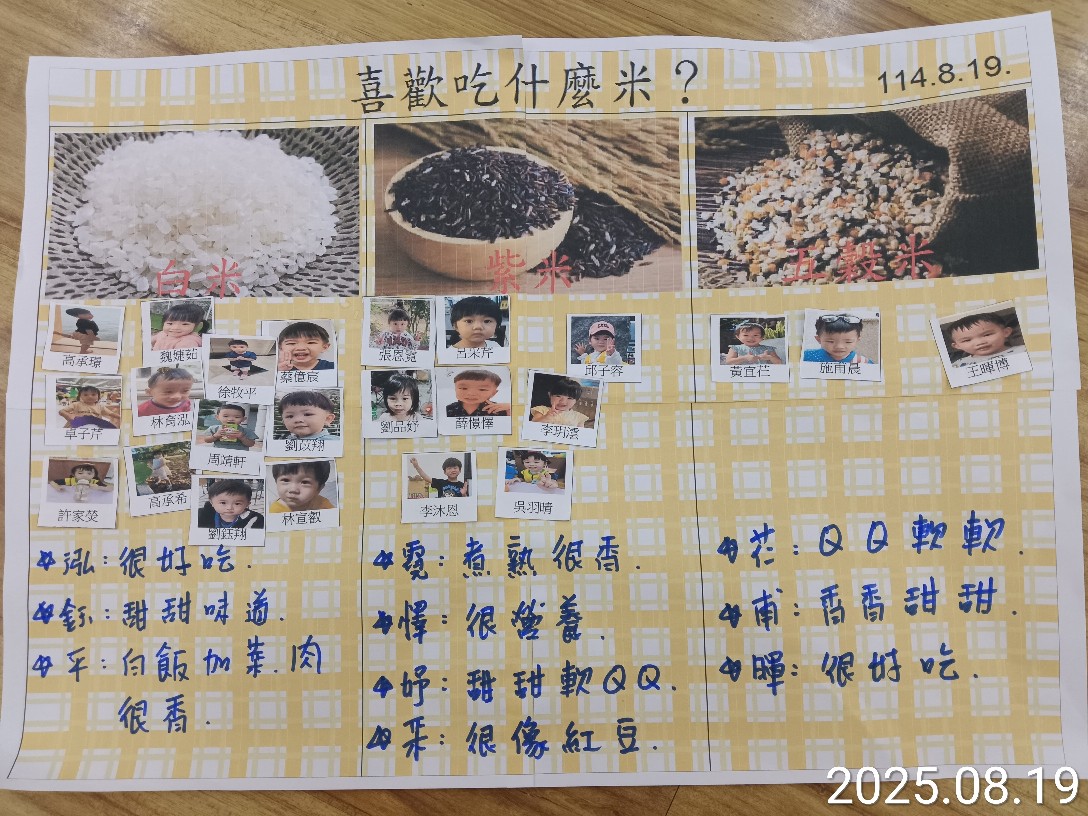 喜歡吃什麼米？
114.8.19.
白米
紫米
五穀米
高承璟
魏婕茹
徐牧平
蔡億宸
卓子芹
林喬泓
周靖軒
劉政翔
許家熒
高承希
劉鈺翔
林宣叡
張恩霓
呂采芹
邱子容
劉品妤
薛憬懌
李玥澐
李沐恩
吳羽晴
黃宜芢
施甫晨
王暉博
泓：很好吃.
鈺：甜甜味道.
平：白飯加菜.肉
很香.
霓：煮熟很香.
懌：很營養.
妤：甜甜軟QQ.
采：很像紅豆.
芢：QQ軟軟.
甫：香香甜甜.
暉：很好吃.
2025.08.19